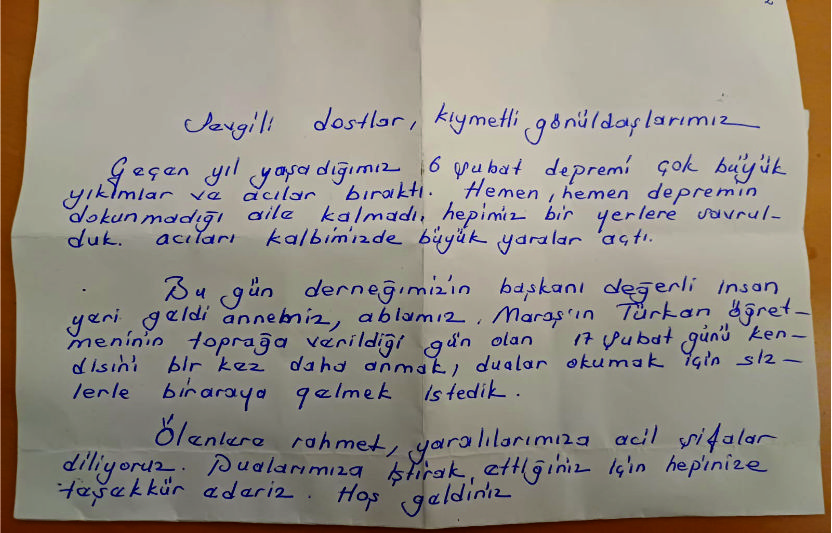 Sevgili dostlar, kıymetli gönüldaşlarımız
Geçen yıl yaşadığımız 6 şubat depremi çok büyük
yıkımlar ve acılar bıraktı. Hemen, hemen depremin
dokunmadığı aile kalmadı, hepimiz bir yerlere savrul-
duk. acıları kalbimizde büyük yaralar açtı.
Bu gün derneğimizin başkanı değerli insan
yeri geldi annemiz, ablamız. Maraş'ın Türkan öğret-
meninin toprağa verildiği gün olan 17 şubat günü ken-
disini bir kez daha anmak, dualar okumak için siz-
lerle biraraya gelmek istedik.
Ölenlere rahmet, yaralılarımıza acil şifalar
diliyoruz. Dualarımıza iştirak ettiğiniz için hepinize
teşekkür ederiz. Hoş geldiniz